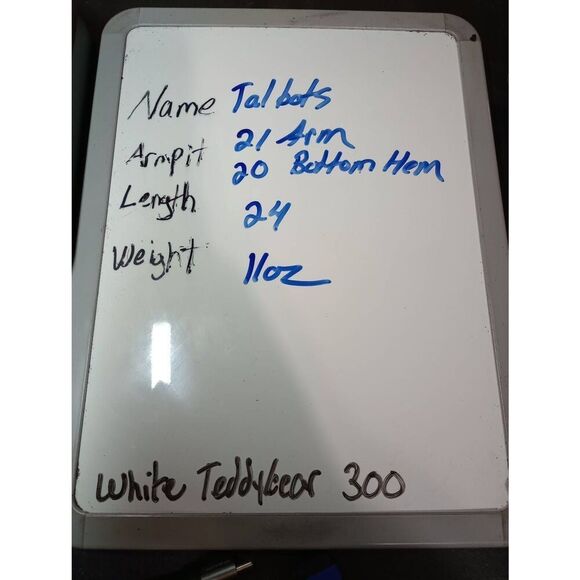 Name Talbots
Armpit 21 Arm
20 Bottom Hem
Length 24
Weight 11oz
White Teddybear 300